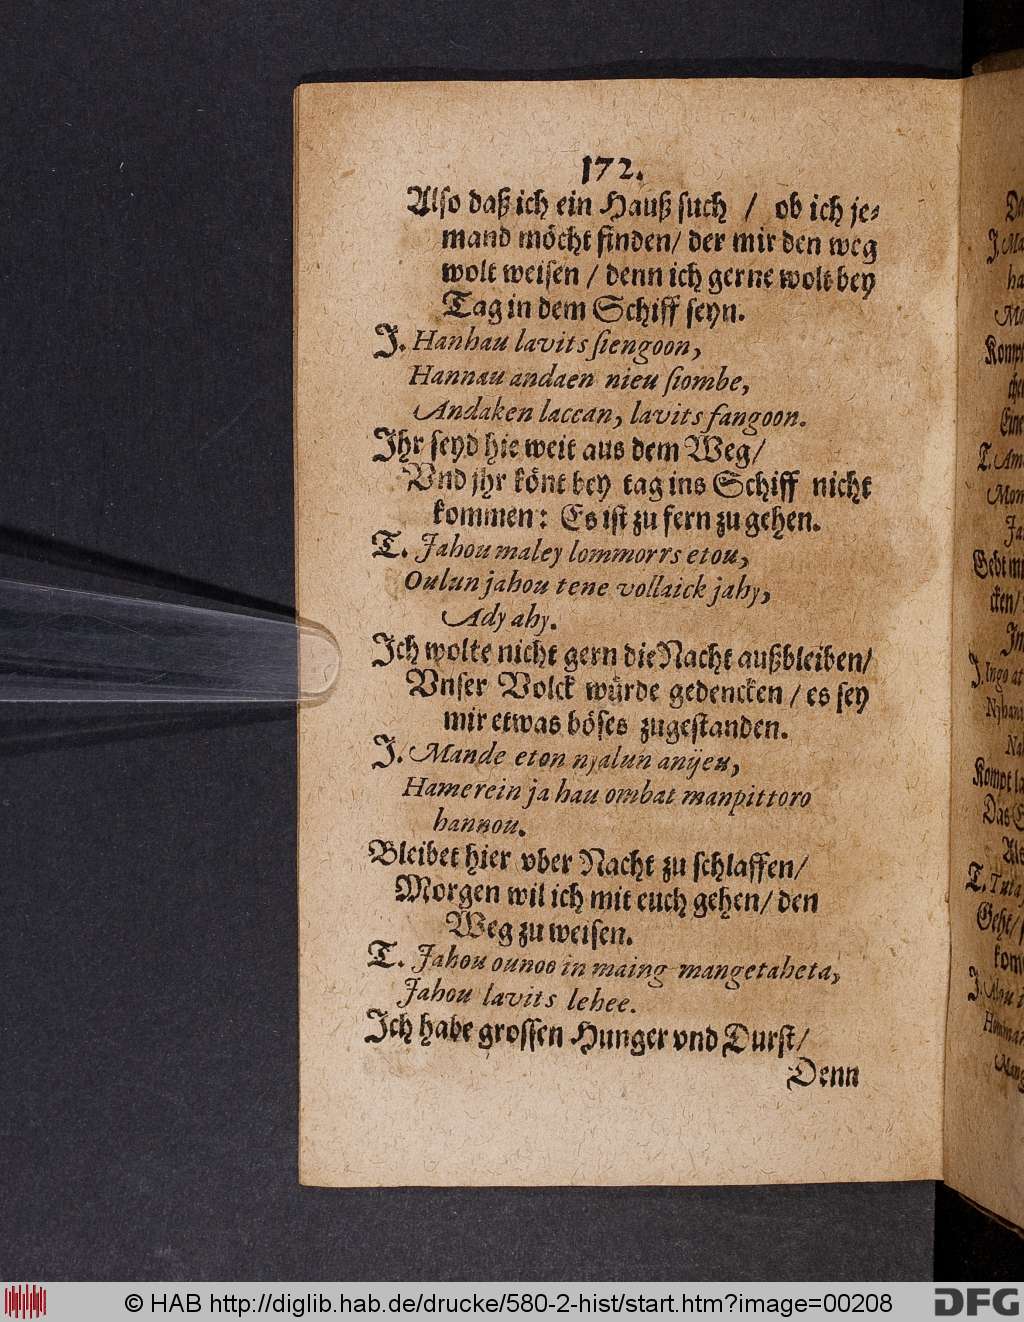 172.
Also daß ich ein Hauß such / ob ich je⸗
mand möcht finden/ der mir den weg
wolt weisen / denn ich gerne wolt bey
Tag in dem Schiff seyn.
J. Hanhau lavits siengoon,
Hannau andaen nieu siombe,
Andaken laccan, lavits fangoon.
Jhr seyd hie weit aus dem Weg/
Vnd jhr könt bey tag ins Schiff nicht
kommen: Es ist zu fern zu gehen.
T. Jahou maley lommorrs etou,
Oulun jahou tene vollaick jahy,
Ady ahy.
Jch wolte nicht gern die Nacht außbleiben/
Vnser Volck würde gedencken / es sey
mir etwas böses zugestanden.
J. Mande eton nyalun anijeu,
Hamerein ja hau ombat manpittoro
hannou.
Bleibet hier vber Nacht zu schlaffen/
Morgen wil ich mit euch gehen/ den
Weg zu weisen.
T. Jahou ounoo in maing mangetaheta,
Jahou lavits lehee.
Jch habe grossen Hunger vnd Durst/
Denn
© HAB http://diglib.hab.de/drucke/580-2-hist/start.htm?image=00208
DFG